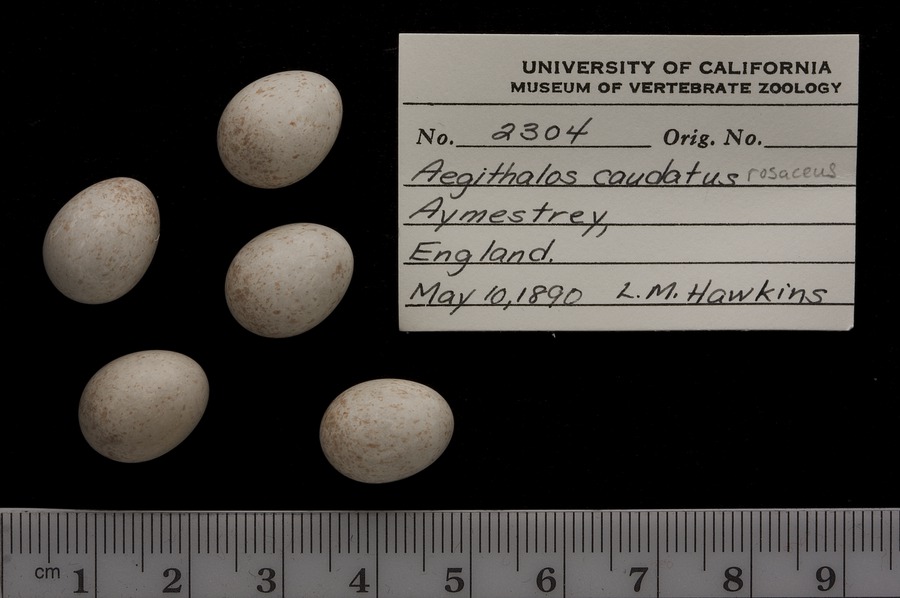 UNIVERSITY OF CALIFORNIA
MUSEUM OF VERTEBRATE ZOOLOGY
No. 2304 Orig. No.
Aegithalos caudatus rosaceus
Aymestrey,
England.
May 10, 1890 L.M. Hawkins
cm 1 2 3 4 5 6 7 8 9